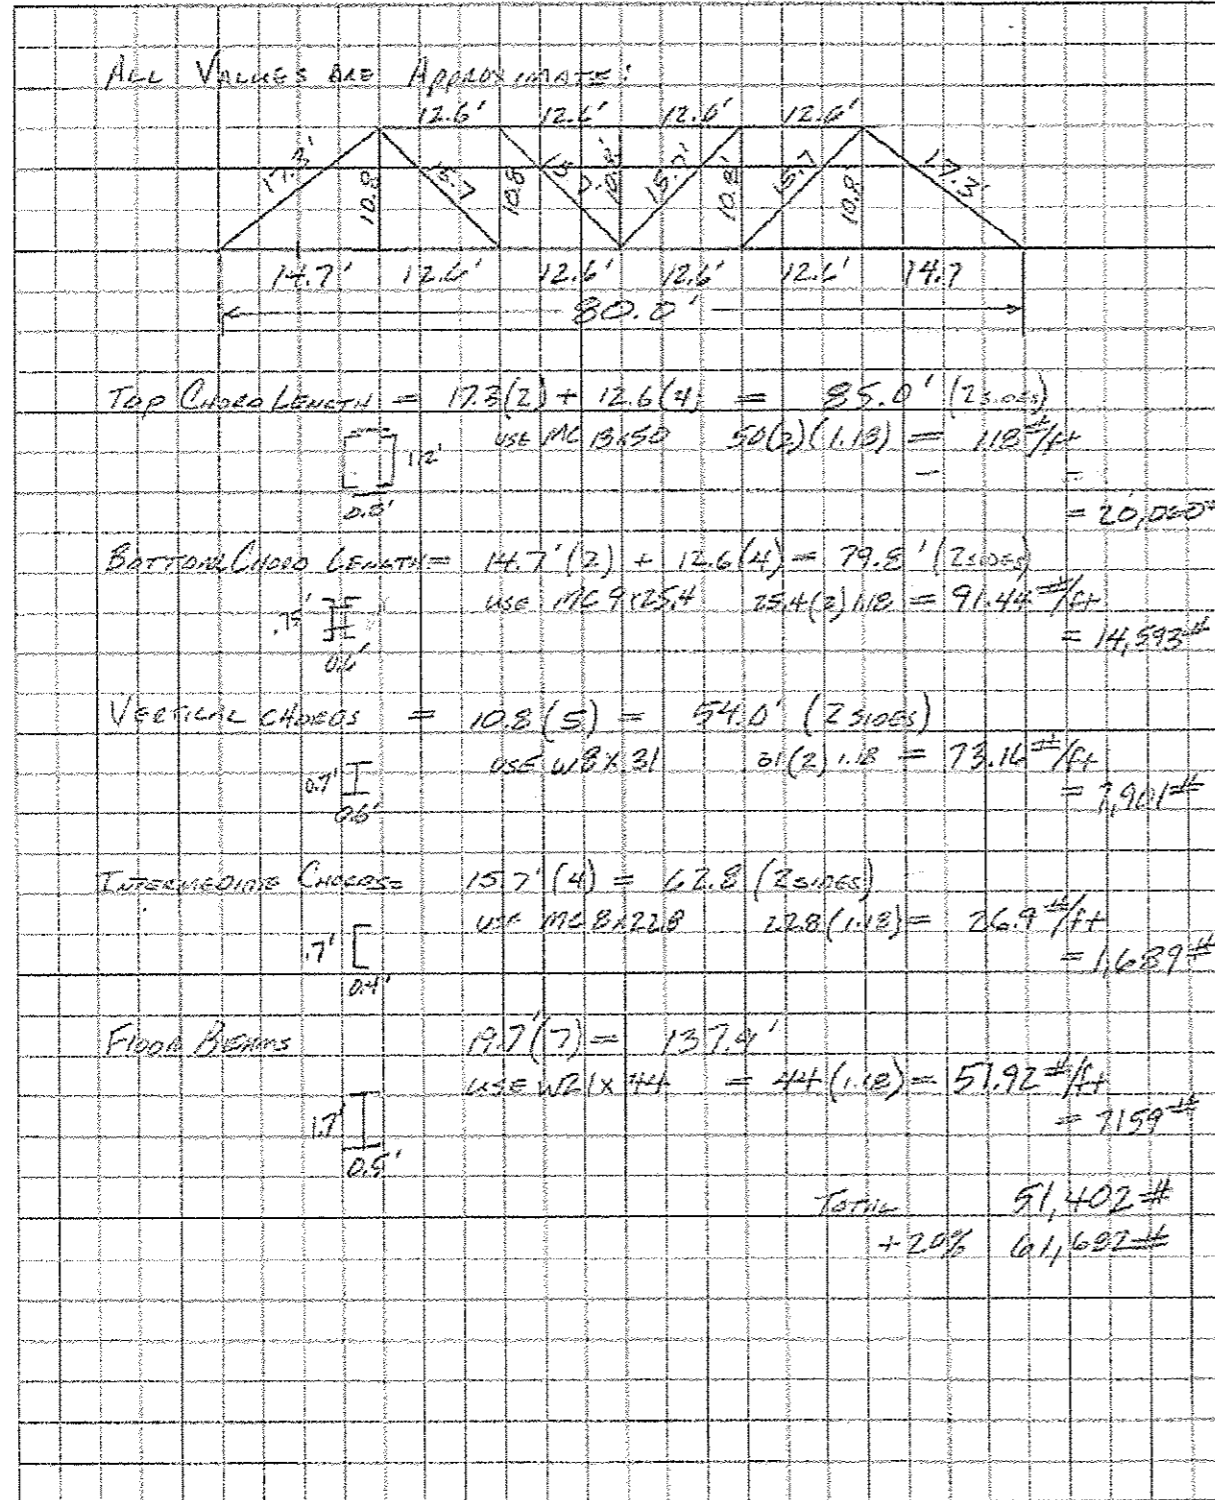 ALL VALUES ARE APPROXIMATE:
12.6' 12.6' 12.6' 12.6'
17.3' 10.8 15.7 10.8' 15.7' 10.8' 15.7' 10.8' 15.7 10.8 17.3'
14.7' 12.6' 12.6' 12.6' 12.6' 14.7
80.0'
TOP CHORD LENGTH = 17.3(2) + 12.6(4) = 85.0' (2 SIDES)
USE MC 13x50 50(2)(1.18) = 118 #/ft
1.2'
0.8'
= 20,060#
BOTTOM CHORD LENGTH = 14.7'(2) + 12.6(4) = 79.8' (2 SIDES)
USE MC 9x25.4 25.4(2)1.18 = 91.44 #/ft
.75'
0.6'
= 14,593#
VERTICAL CHORDS = 10.8(5) = 54.0' (2 SIDES)
USE W8X31 31(2)1.18 = 73.16 #/ft
0.7'
0.6'
= 7,901#
INTERMEDIATE CHORDS = 15.7'(4) = 62.8 (2 SIDES)
USE MC 8x22.8 22.8(1.18) = 26.9 #/ft
.7'
0.4'
= 1,689#
FLOOR BEAMS 19.7'(7) = 137.9'
USE W21X44 = 44(1.18) = 51.92 #/ft
1.7'
0.5'
= 7159#
TOTAL 51,402#
+20% 61,682#